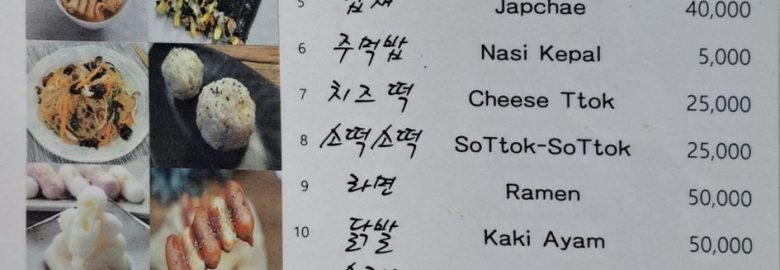 5 잡채 Japchae 40,000
6 주먹밥 Nasi Kepal 5,000
7 치즈 떡 Cheese Ttok 25,000
8 소떡소떡 SoTtok-SoTtok 25,000
9 라면 Ramen 50,000
10 닭발 Kaki Ayam 50,000